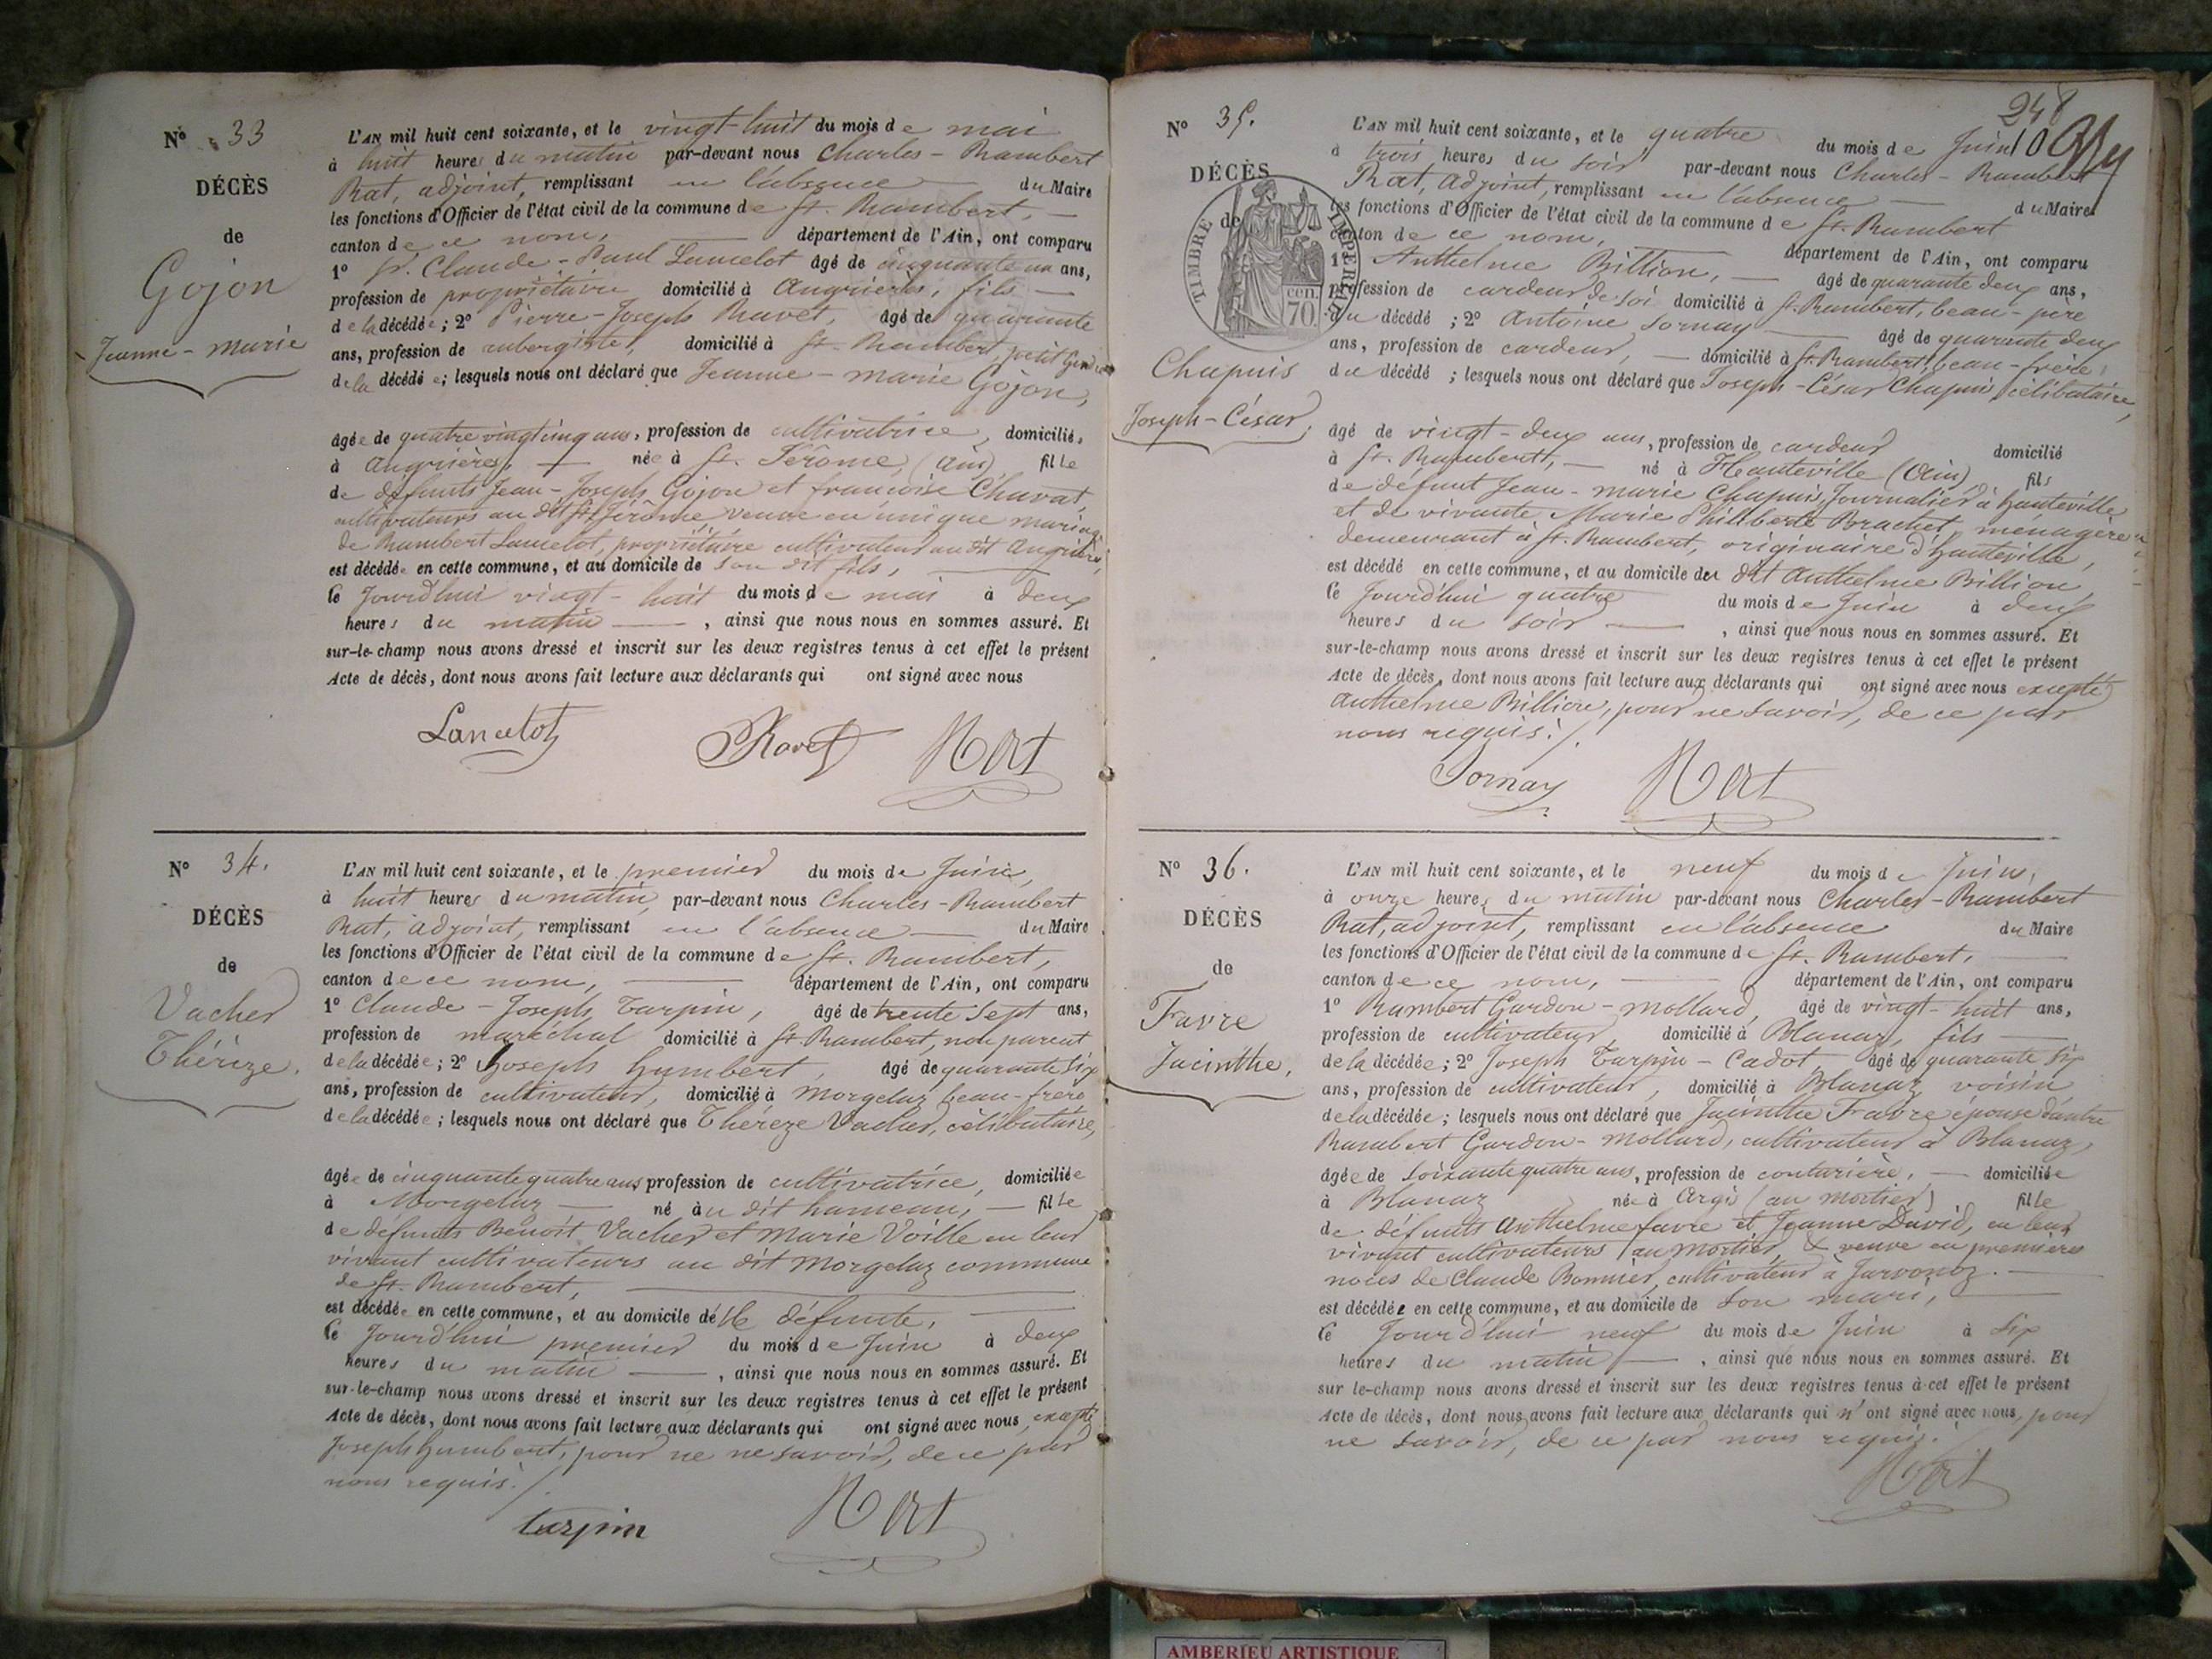 N° 33
DÉCÈS
de
Gojon
Jeanne-marie
L'AN mil huit cent soixante, et le vingt-huit du mois de mai
à huit heures du matin par-devant nous Charles-Rambert
Rat, adjoint, remplissant en l'absence du Maire
les fonctions d'Officier de l'état civil de la commune de St. Rambert,
canton de ce nom, département de l'Ain, ont comparu
1° Sr. Claude-Paul Lancelot âgé de cinquante un ans,
profession de propriétaire domicilié à Angrières, fils
de la décédée; 2° Pierre-Joseph Ravet, âgé de quarante
ans, profession de aubergiste, domicilié à St. Rambert, petit Gendre
de la décédée; lesquels nous ont déclaré que Jeanne-marie Gojon,
âgée de quatre vingt cinq ans, profession de cultivatrice, domiciliée
à Angrières, née à St. Jérome, (Ain) fille
de défunts Jean-Joseph Gojon et françoise Chavat,
cultivateurs au dit St. Jérôme, veuve en unique mariage
de Rambert Lancelot, propriétaire cultivateur au dit Angrières,
est décédée en cette commune, et au domicile de son dit fils,
le Jourd'hui vingt-huit du mois de mai à deux
heures du matin, ainsi que nous nous en sommes assuré. Et
sur-le-champ nous avons dressé et inscrit sur les deux registres tenus à cet effet le présent
Acte de décès, dont nous avons fait lecture aux déclarants qui ont signé avec nous
Lancelot PRavet Rat
N° 34.
DÉCÈS
de
Vacher
Thérèze.
L'AN mil huit cent soixante, et le premier du mois de Juin,
à huit heures du matin, par-devant nous Charles-Rambert
Rat, adjoint, remplissant en l'absence du Maire
les fonctions d'Officier de l'état civil de la commune de St. Rambert,
canton de ce nom, département de l'Ain, ont comparu
1° Claude-Joseph Tarpin, âgé de trente sept ans,
profession de maréchal domicilié à St Rambert, non parent
de la décédée; 2° Joseph Humbert, âgé de quarante six
ans, profession de cultivateur, domicilié à Morgelaz beau-frère
de la décédée; lesquels nous ont déclaré que Thérèze Vacher, célibataire,
âgée de cinquante quatre ans profession de cultivatrice, domiciliée
à Morgelaz né au dit hameau, fille
de défunts Benoît Vacher et Marie Voille en leur
vivant cultivateurs au dit Morgelaz commune
de St. Rambert,
est décédée en cette commune, et au domicile de la défunte,
le Jourd'hui premier du mois de Juin à deux
heures du matin, ainsi que nous nous en sommes assuré. Et
sur-le-champ nous avons dressé et inscrit sur les deux registres tenus à cet effet le présent
Acte de décès, dont nous avons fait lecture aux déclarants qui ont signé avec nous, excepté
Joseph Humbert, pour ne ne savoir, de ce par
nous requis./.
tarpin Rat
248
N° 35.
DÉCÈS
de
TIMBRE IMPÉRIAL
70 cen.
Chapuis
Joseph-César.
L'AN mil huit cent soixante, et le quatre du mois de Juin
à trois heures du soir par-devant nous Charles-Rambert
Rat, adjoint, remplissant en l'absence du Maire
les fonctions d'Officier de l'état civil de la commune de St. Rambert
canton de ce nom, département de l'Ain, ont comparu
1° Anthelme Billion, âgé de quarante deux ans,
profession de cardeur de soi domicilié à St. Rambert, beau-père
du décédé; 2° Antoine Sornay âgé de quarante deux
ans, profession de cardeur, domicilié à St. Rambert, beau-frère
du décédé; lesquels nous ont déclaré que Joseph-César Chapuis, célibataire,
âgé de vingt-deux ans, profession de cardeur domicilié
à St. Rambert, né à Hauteville (Ain) fils
de défunt Jean-marie Chapuis, Journalier à hauteville
et de vivante Marie Philiberte Brachet, ménagère
demeurant à St. Rambert, originaire d'Hauteville,
est décédé en cette commune, et au domicile du dit Anthelme Billion
le Jourd'hui quatre du mois de Juin à deux
heures du soir, ainsi que nous nous en sommes assuré. Et
sur-le-champ nous avons dressé et inscrit sur les deux registres tenus à cet effet le présent
Acte de décès, dont nous avons fait lecture aux déclarants qui ont signé avec nous excepté
Anthelme Billion, pour ne savoir, de ce par
nous requis./.
Sornay Rat
N° 36.
DÉCÈS
de
Favre
Jacinthe,
L'AN mil huit cent soixante, et le neuf du mois de Juin,
à onze heures du matin par-devant nous Charles-Rambert
Rat, adjoint, remplissant en l'absence du Maire
les fonctions d'Officier de l'état civil de la commune de St. Rambert,
canton de ce nom, département de l'Ain, ont comparu
1° Rambert Gardon-Mollard, âgé de vingt-huit ans,
profession de cultivateur domicilié à Blanaz, fils
de la décédée; 2° Joseph Tarpin-Cadot âgé de quarante six
ans, profession de cultivateur, domicilié à Blanaz voisin
de la décédée; lesquels nous ont déclaré que Jacinthe Favre épouse d'autre
Rambert Gardon-Mollard, cultivateur à Blanaz,
âgée de soixante quatre ans, profession de couturière, domiciliée
à Blanaz née à Argis (au mortier) fille
de défunts Anthelme favre et Jeanne David, en leur
vivant cultivateurs au mortier, & veuve en premières
noces de Claude Bonnier, cultivateur à Javornoz.
est décédée en cette commune, et au domicile de son mari,
le Jourd'hui neuf du mois de Juin à six
heures du matin, ainsi que nous nous en sommes assuré. Et
sur le-champ nous avons dressé et inscrit sur les deux registres tenus à cet effet le présent
Acte de décès, dont nous avons fait lecture aux déclarants qui n'ont signé avec nous, pour
ne savoir, de ce par nous requis.
Rat
AMBERIEU ARTISTIQUE